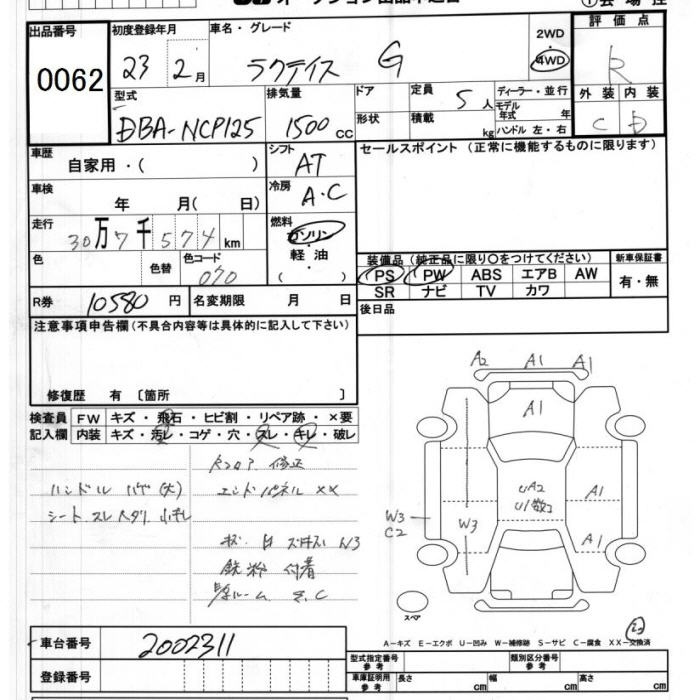 オークション出品申込書
出品番号 初度登録年月 車名・グレード 2WD 4WD 評価点
0062 23年 2月 ラクティス G R
型式 排気量 ドア 定員 ディーラー・並行 外装 内装
DBA-NCP125 1500cc 形状 5人 積載 kg モデル年式 年 ハンドル 左・右 C D
車歴 シフト セールスポイント (正常に機能するものに限ります)
自家用・( ) AT
車検 冷房
年 月( 日) A・C
走行 燃料
30万7千574km ガソリン
色 色替 色コード 軽油 装備品 (純正品に限り○をつけてください) 新車保証書
070 ( ) PS PW ABS エアB AW 有・無
SR ナビ TV カワ
R券 10580円 名変期限 月 日 後日品
注意事項申告欄 (不具合内容等は具体的に記入して下さい)
修復歴 有 〔箇所 〕
A2 A1 A1
検査員 FW キズ・飛石・ヒビ割・リペア跡・×要 A1
記入欄 内装 キズ・汚レ・コゲ・穴・スレ・キレ・破レ
修正
ハンドル ハゲ(大) エンドパネル ××
シート スレ UA2 U1数コ A1
W3 C2 W3 A1
鉄粉 付着
スペア
A-キズ E-エクボ U-凹み W-補修跡 S-サビ C-腐食 XX-交換済
車台番号 2002311
型式指定番号 参考 類別区分番号 参考
登録番号 車庫証明用 参考 長さ cm 幅 cm 高さ cm